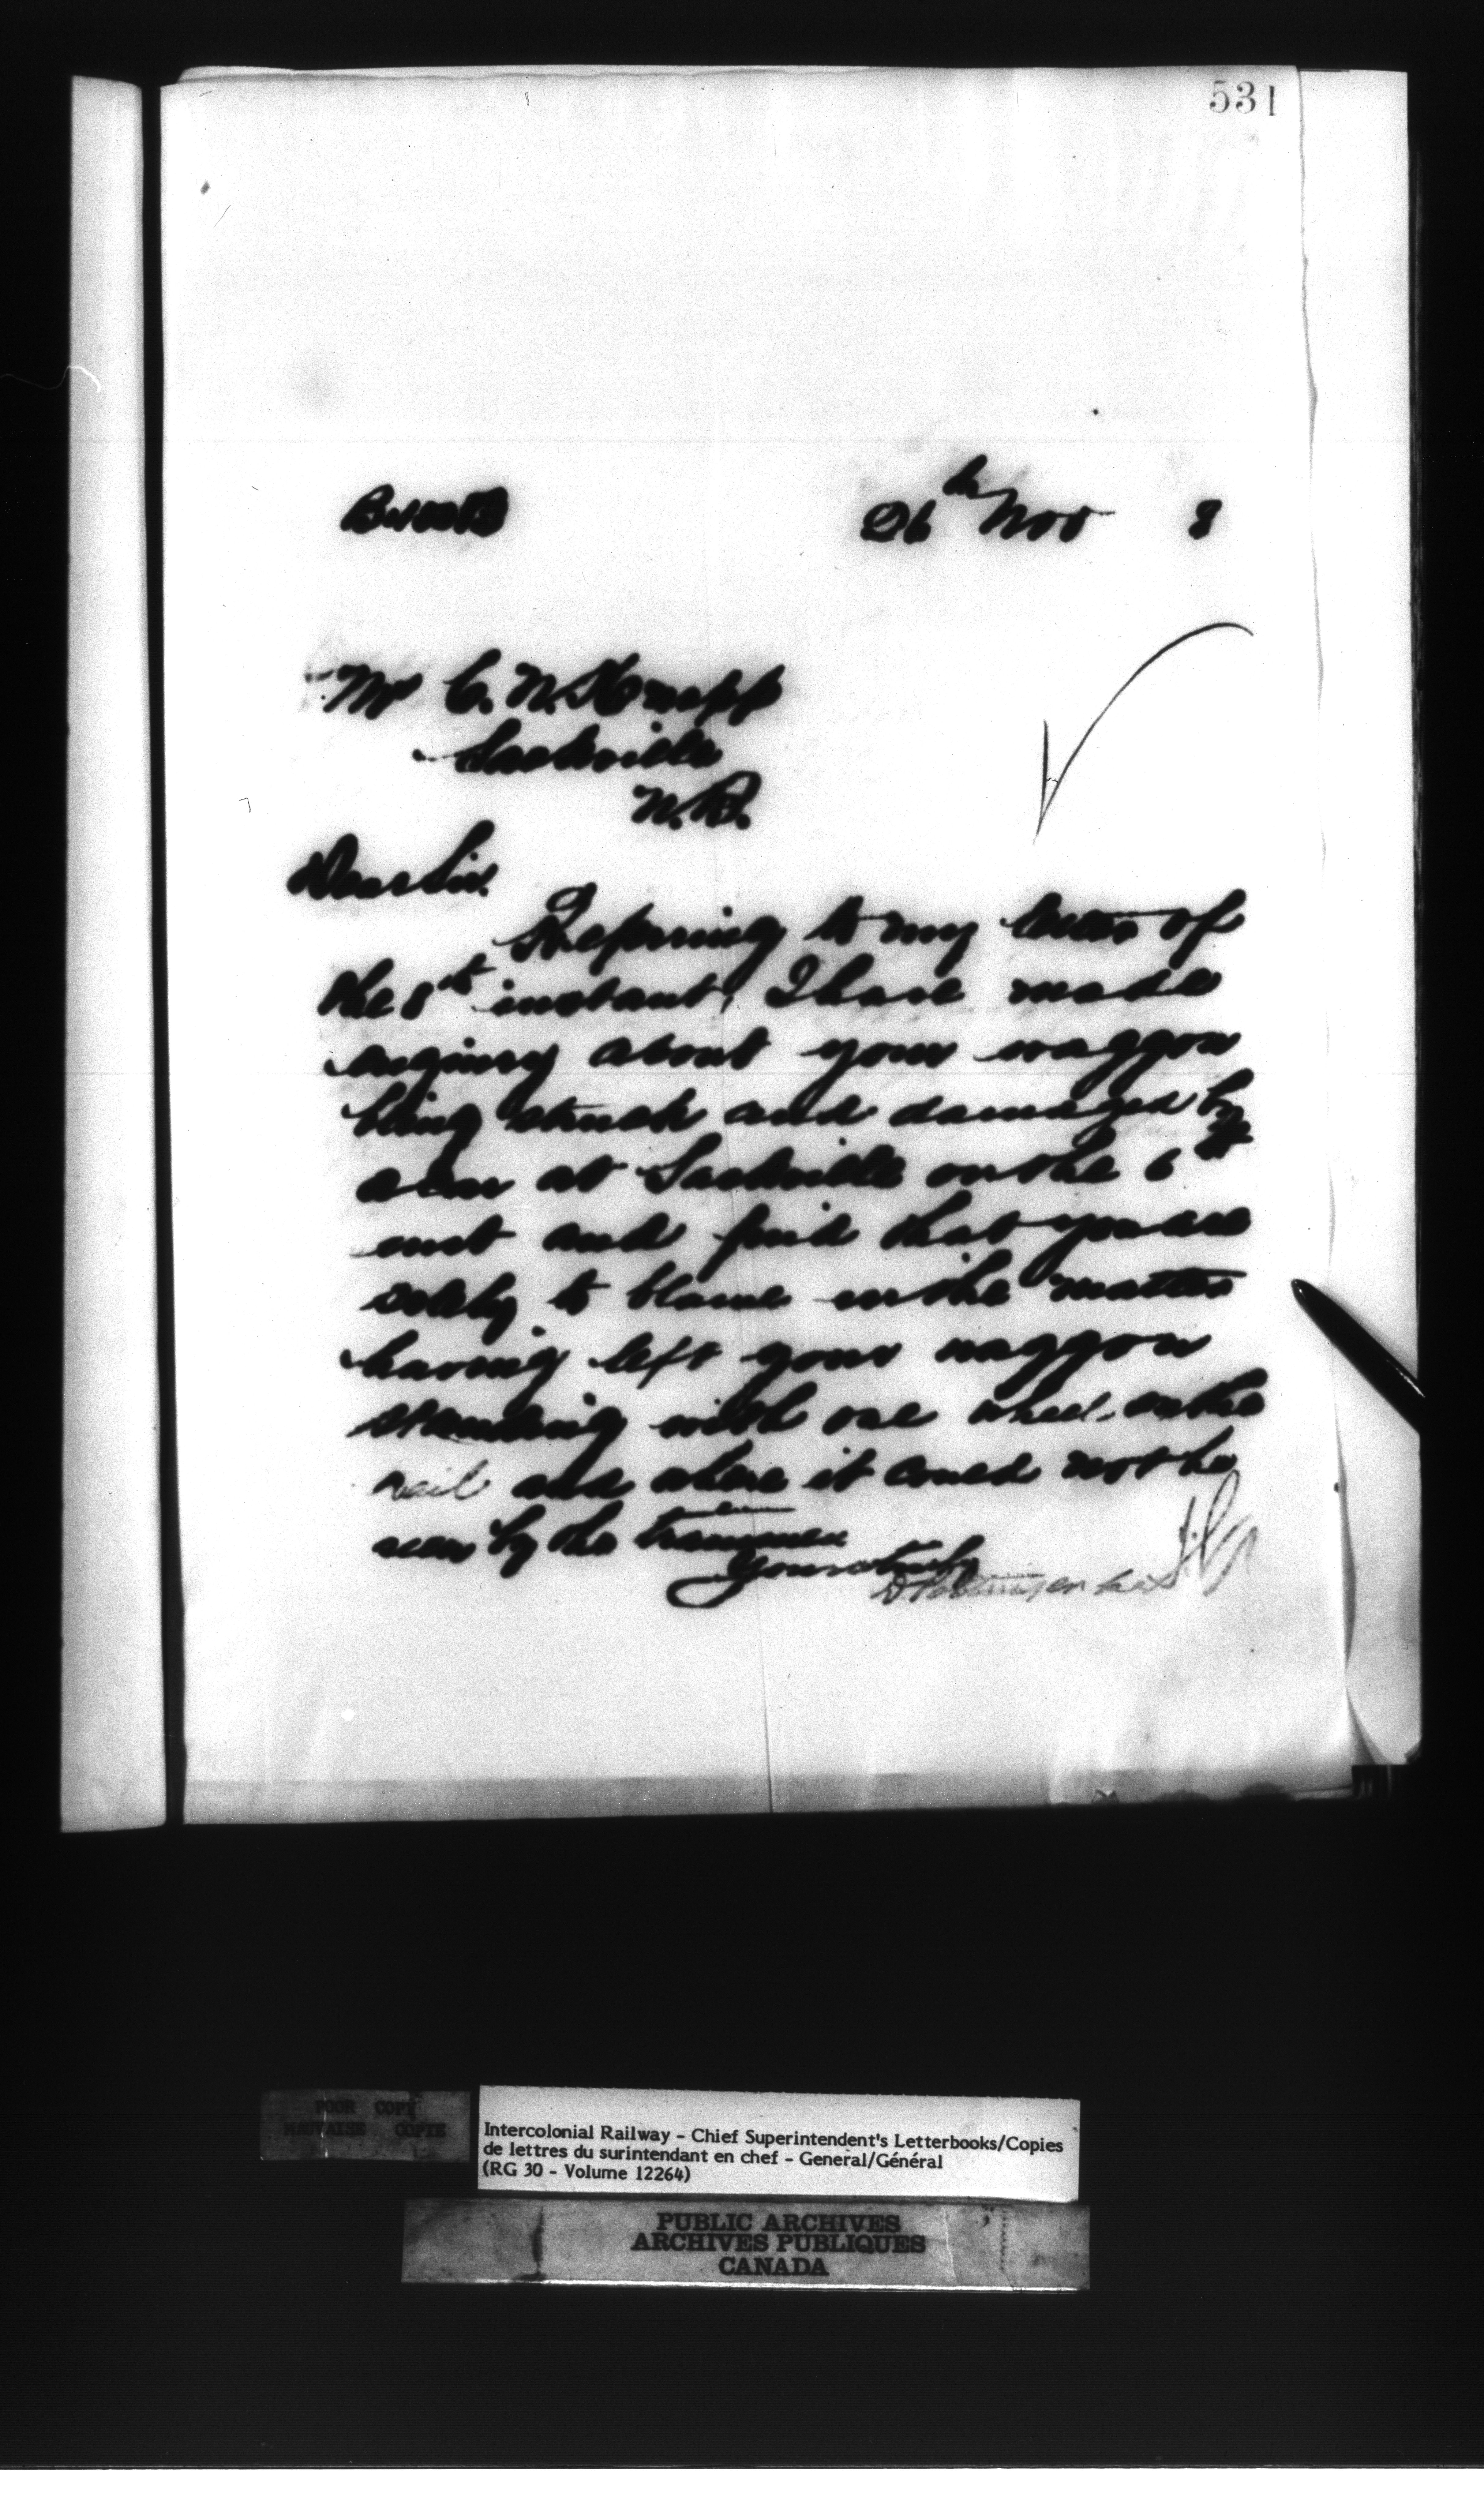 531
26th Nov 8
Mr C. N. Knapp
Sackville
N.B.
Dear Sir.
Referring to my letter of
the 8th instant, I have made
enquiry about your waggon
being struck and damaged by
a car at Sackville on the 6th
inst and find that you are
solely to blame in the matter
having left your waggon
standing with one wheel on the
rail and where it could not be
seen by the trainmen
Yours truly
D Pottinger
POOR COPY
MAUVAISE COPIE
Intercolonial Railway - Chief Superintendent's Letterbooks/Copies
de lettres du surintendant en chef - General/Général
(RG 30 - Volume 12264)
PUBLIC ARCHIVES
ARCHIVES PUBLIQUES
CANADA